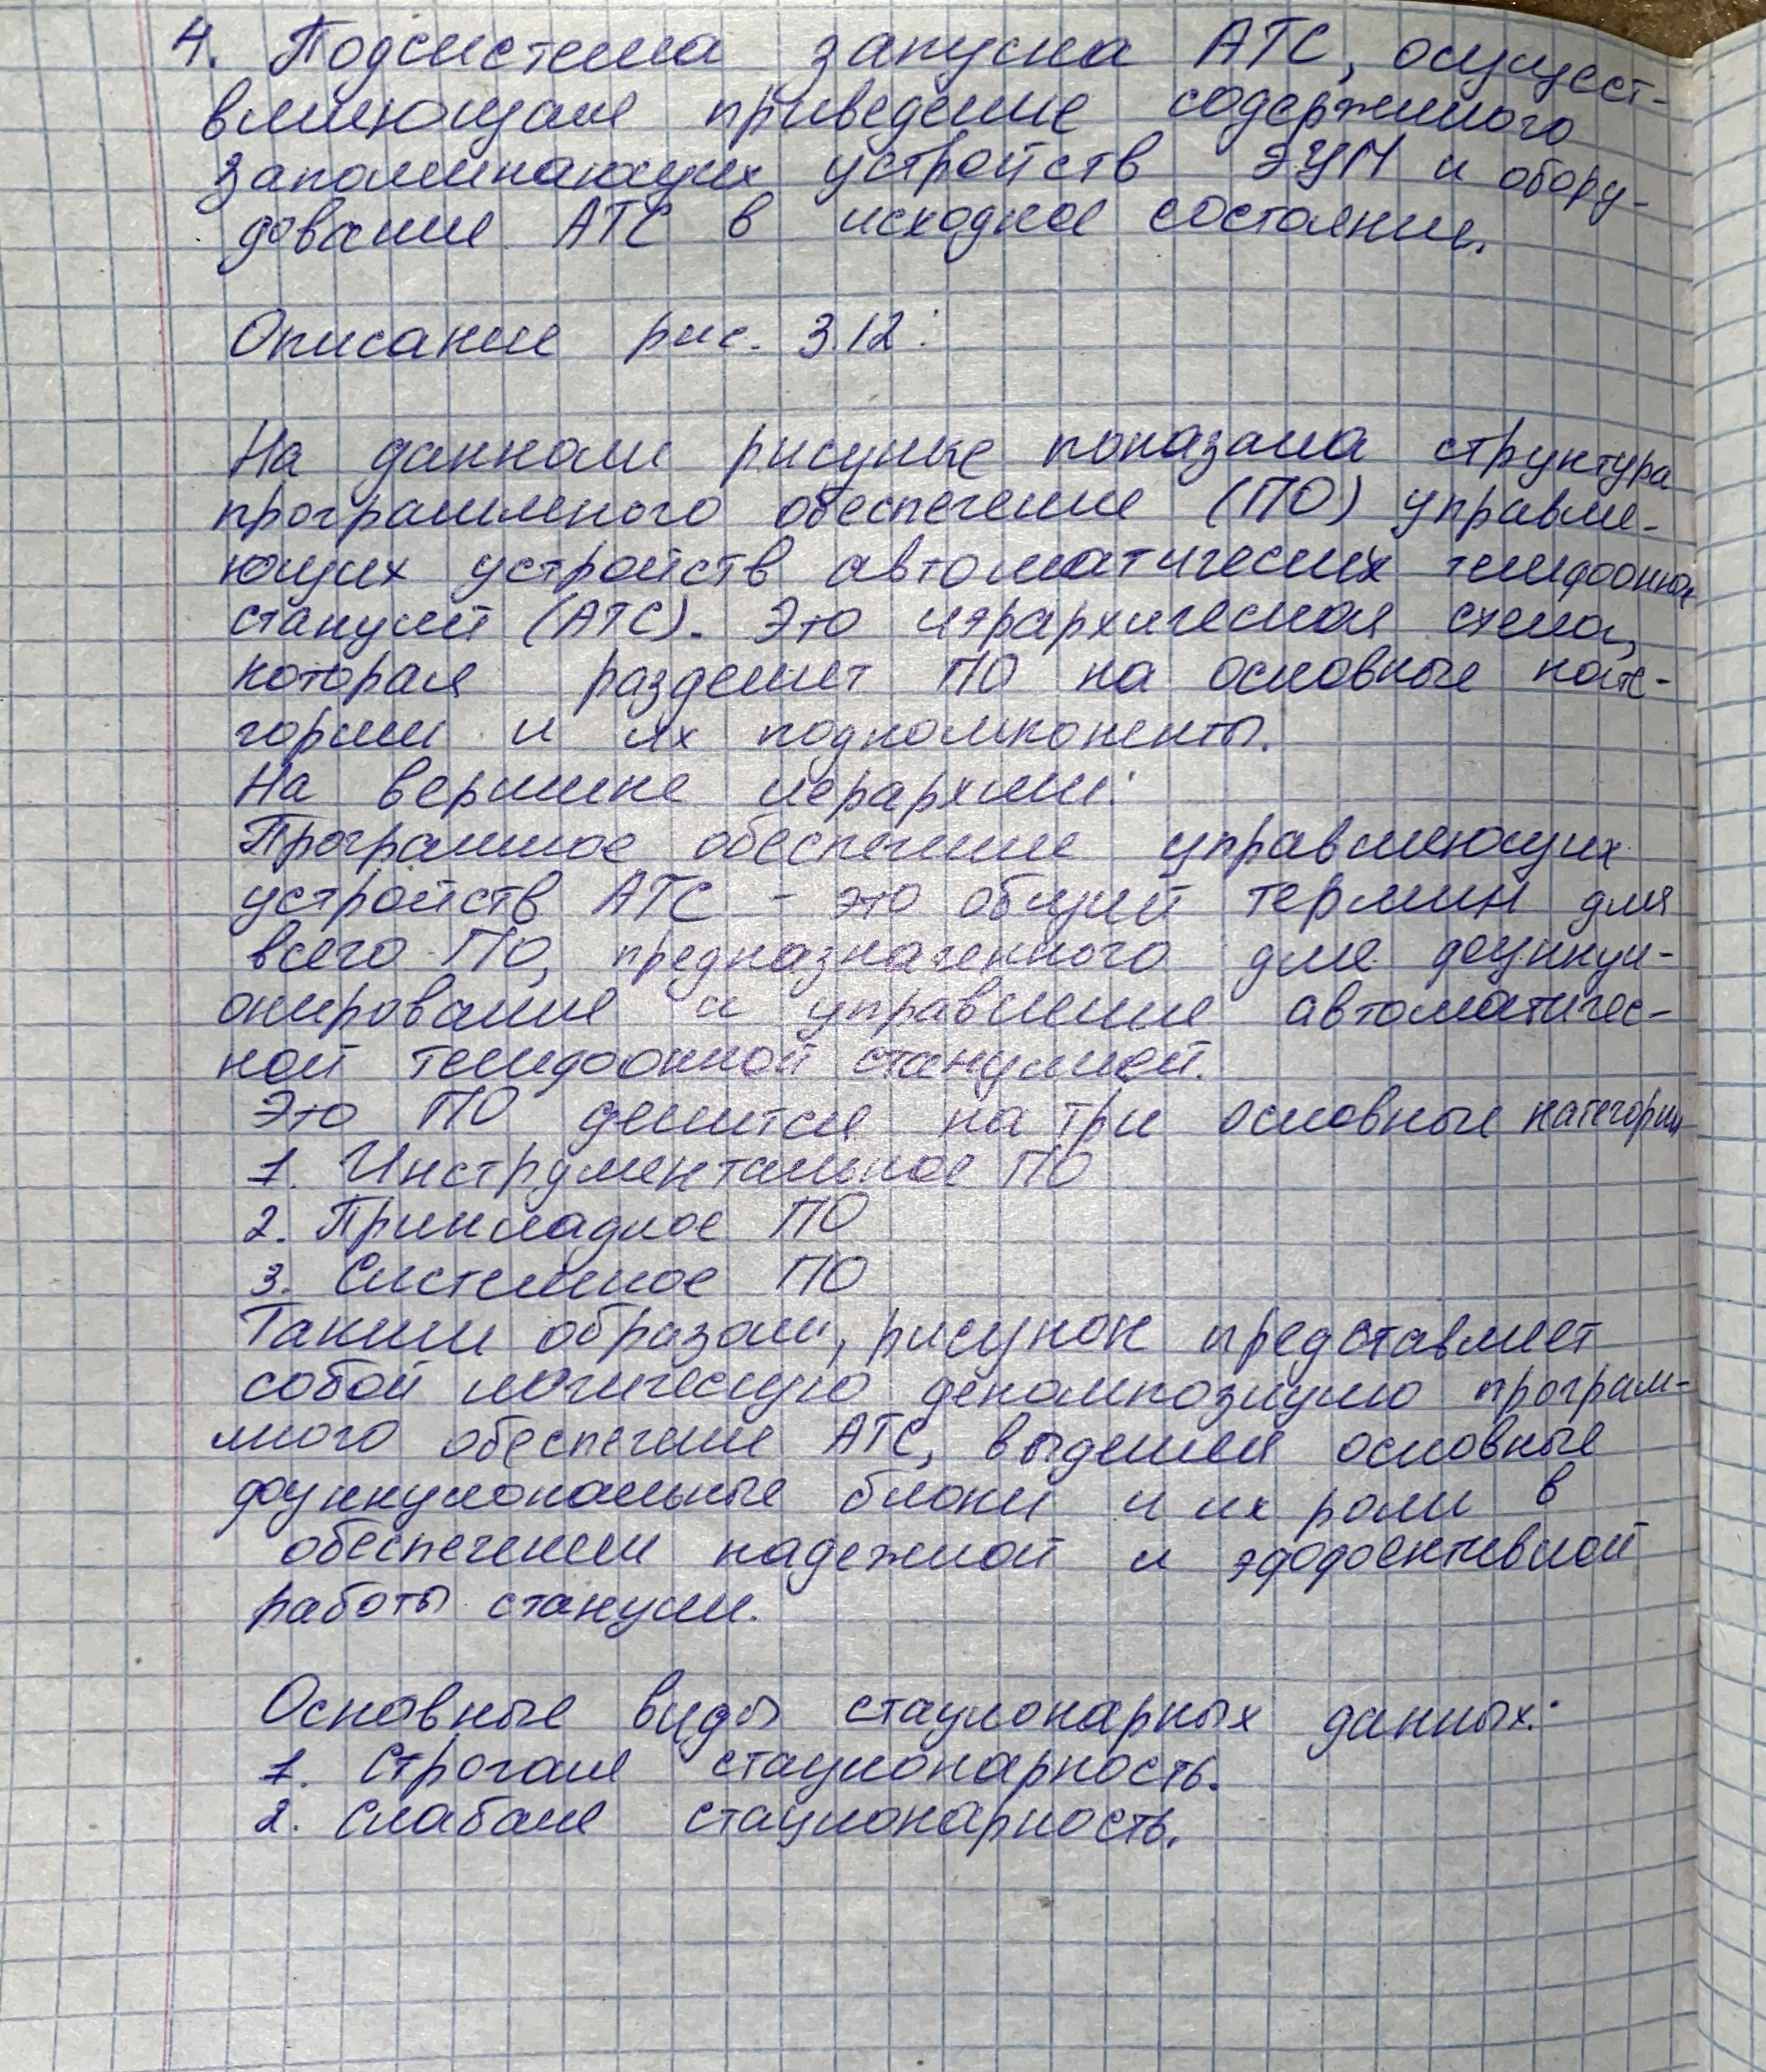 4. Подсистема запуска АТС, осущест-
вляющая приведение содержимого
запоминающих устройств ЭУМ и обору-
дование АТС в исходное состояние.
Описание рис. 3.12:
На данном рисунке показана структура
программного обеспечения (ПО) управля-
ющих устройств автоматических телефонных
станций (АТС). Это иерархическая схема,
которая разделяет ПО на основные кате-
гории и их подкомпоненты.
На вершине иерархии:
Программное обеспечение управляющих
устройств АТС - это общий термин для
всего ПО, предназначенного для функци-
онирования и управления автоматичес-
кой телефонной станцией.
Это ПО делится на три основные категории
1. Инструментальное ПО
2. Прикладное ПО
3. Системное ПО
Таким образом, рисунок представляет
собой логическую декомпозицию програм-
много обеспечения АТС, выделяя основные
функциональные блоки и их роли в
обеспечении надежной и эффективной
работы станции.
Основные виды стационарных данных:
1. Строгая стационарность.
2. Слабая стационарность.